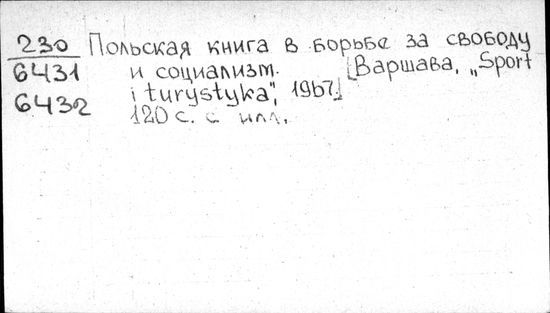 230 Польская книга в борьбе за свободу
6431 и социализм. [Варшава, „Sport
6432 i turystyka", 1967.]
120 с. с илл.